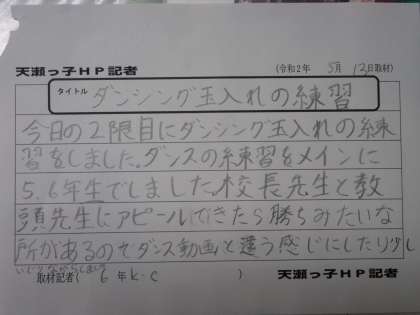 天瀬っ子HP記者 (令和2年 5月 13日取材)
タイトル ダンシング玉入れの練習
今日の2限目にダンシング玉入れの練
習をしました。ダンスの練習をメインに
5.6年生でしました。校長先生と教
頭先生にアピールできたら勝ちみたいな
所があるのでダンス動画と違う感じにしたり少し
取材記者( 6年 K.C ) 天瀬っ子HP記者